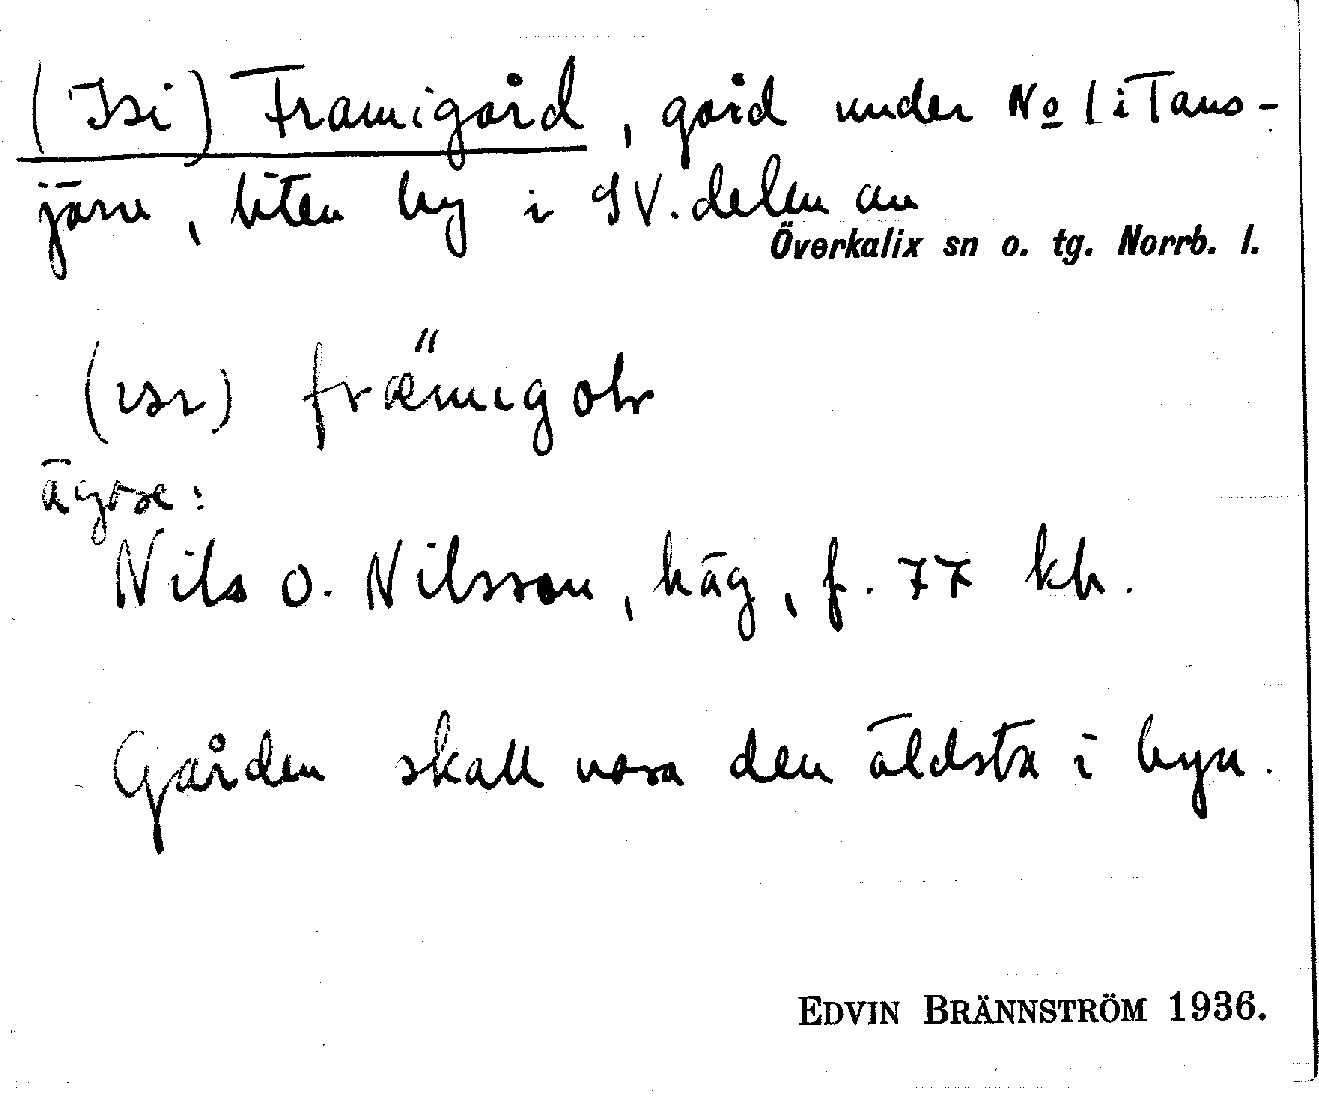 (Isi) Framigård, gård under No 1 i Tans-
järv, liten by i SV. delen av
Överkalix sn o. tg. Norrb. l.
(ısı) fræ̋mıgoɦr
ägore:
Nils O. Nilsson, häg, f. 77 kh.
Gården skall vara den äldsta i byn.
EDVIN BRÄNNSTRÖM 1936.